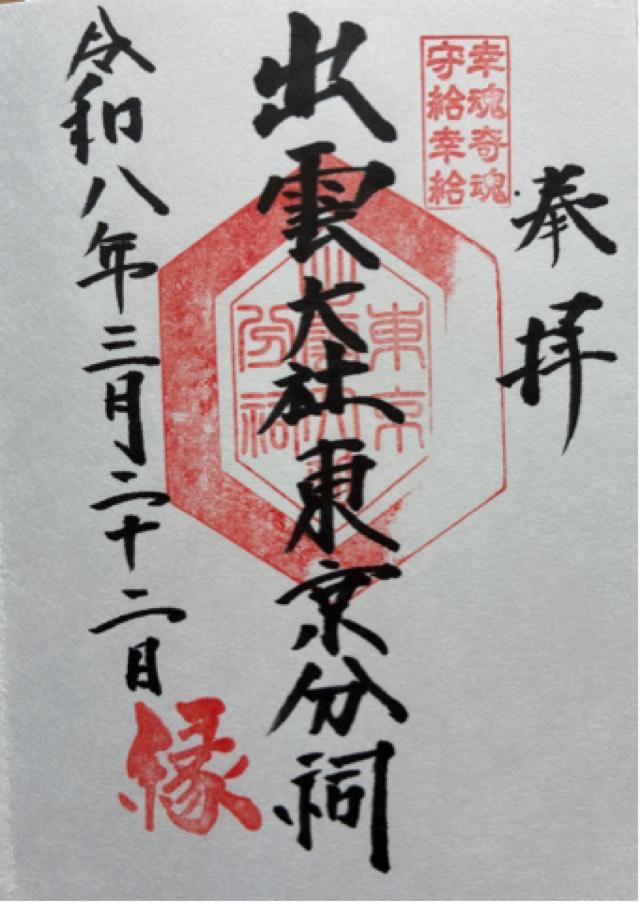 奉拝
幸魂奇魂
守給幸給
出雲大社東京分祠
東京
出雲大社
分祠
令和八年三月二十二日
縁